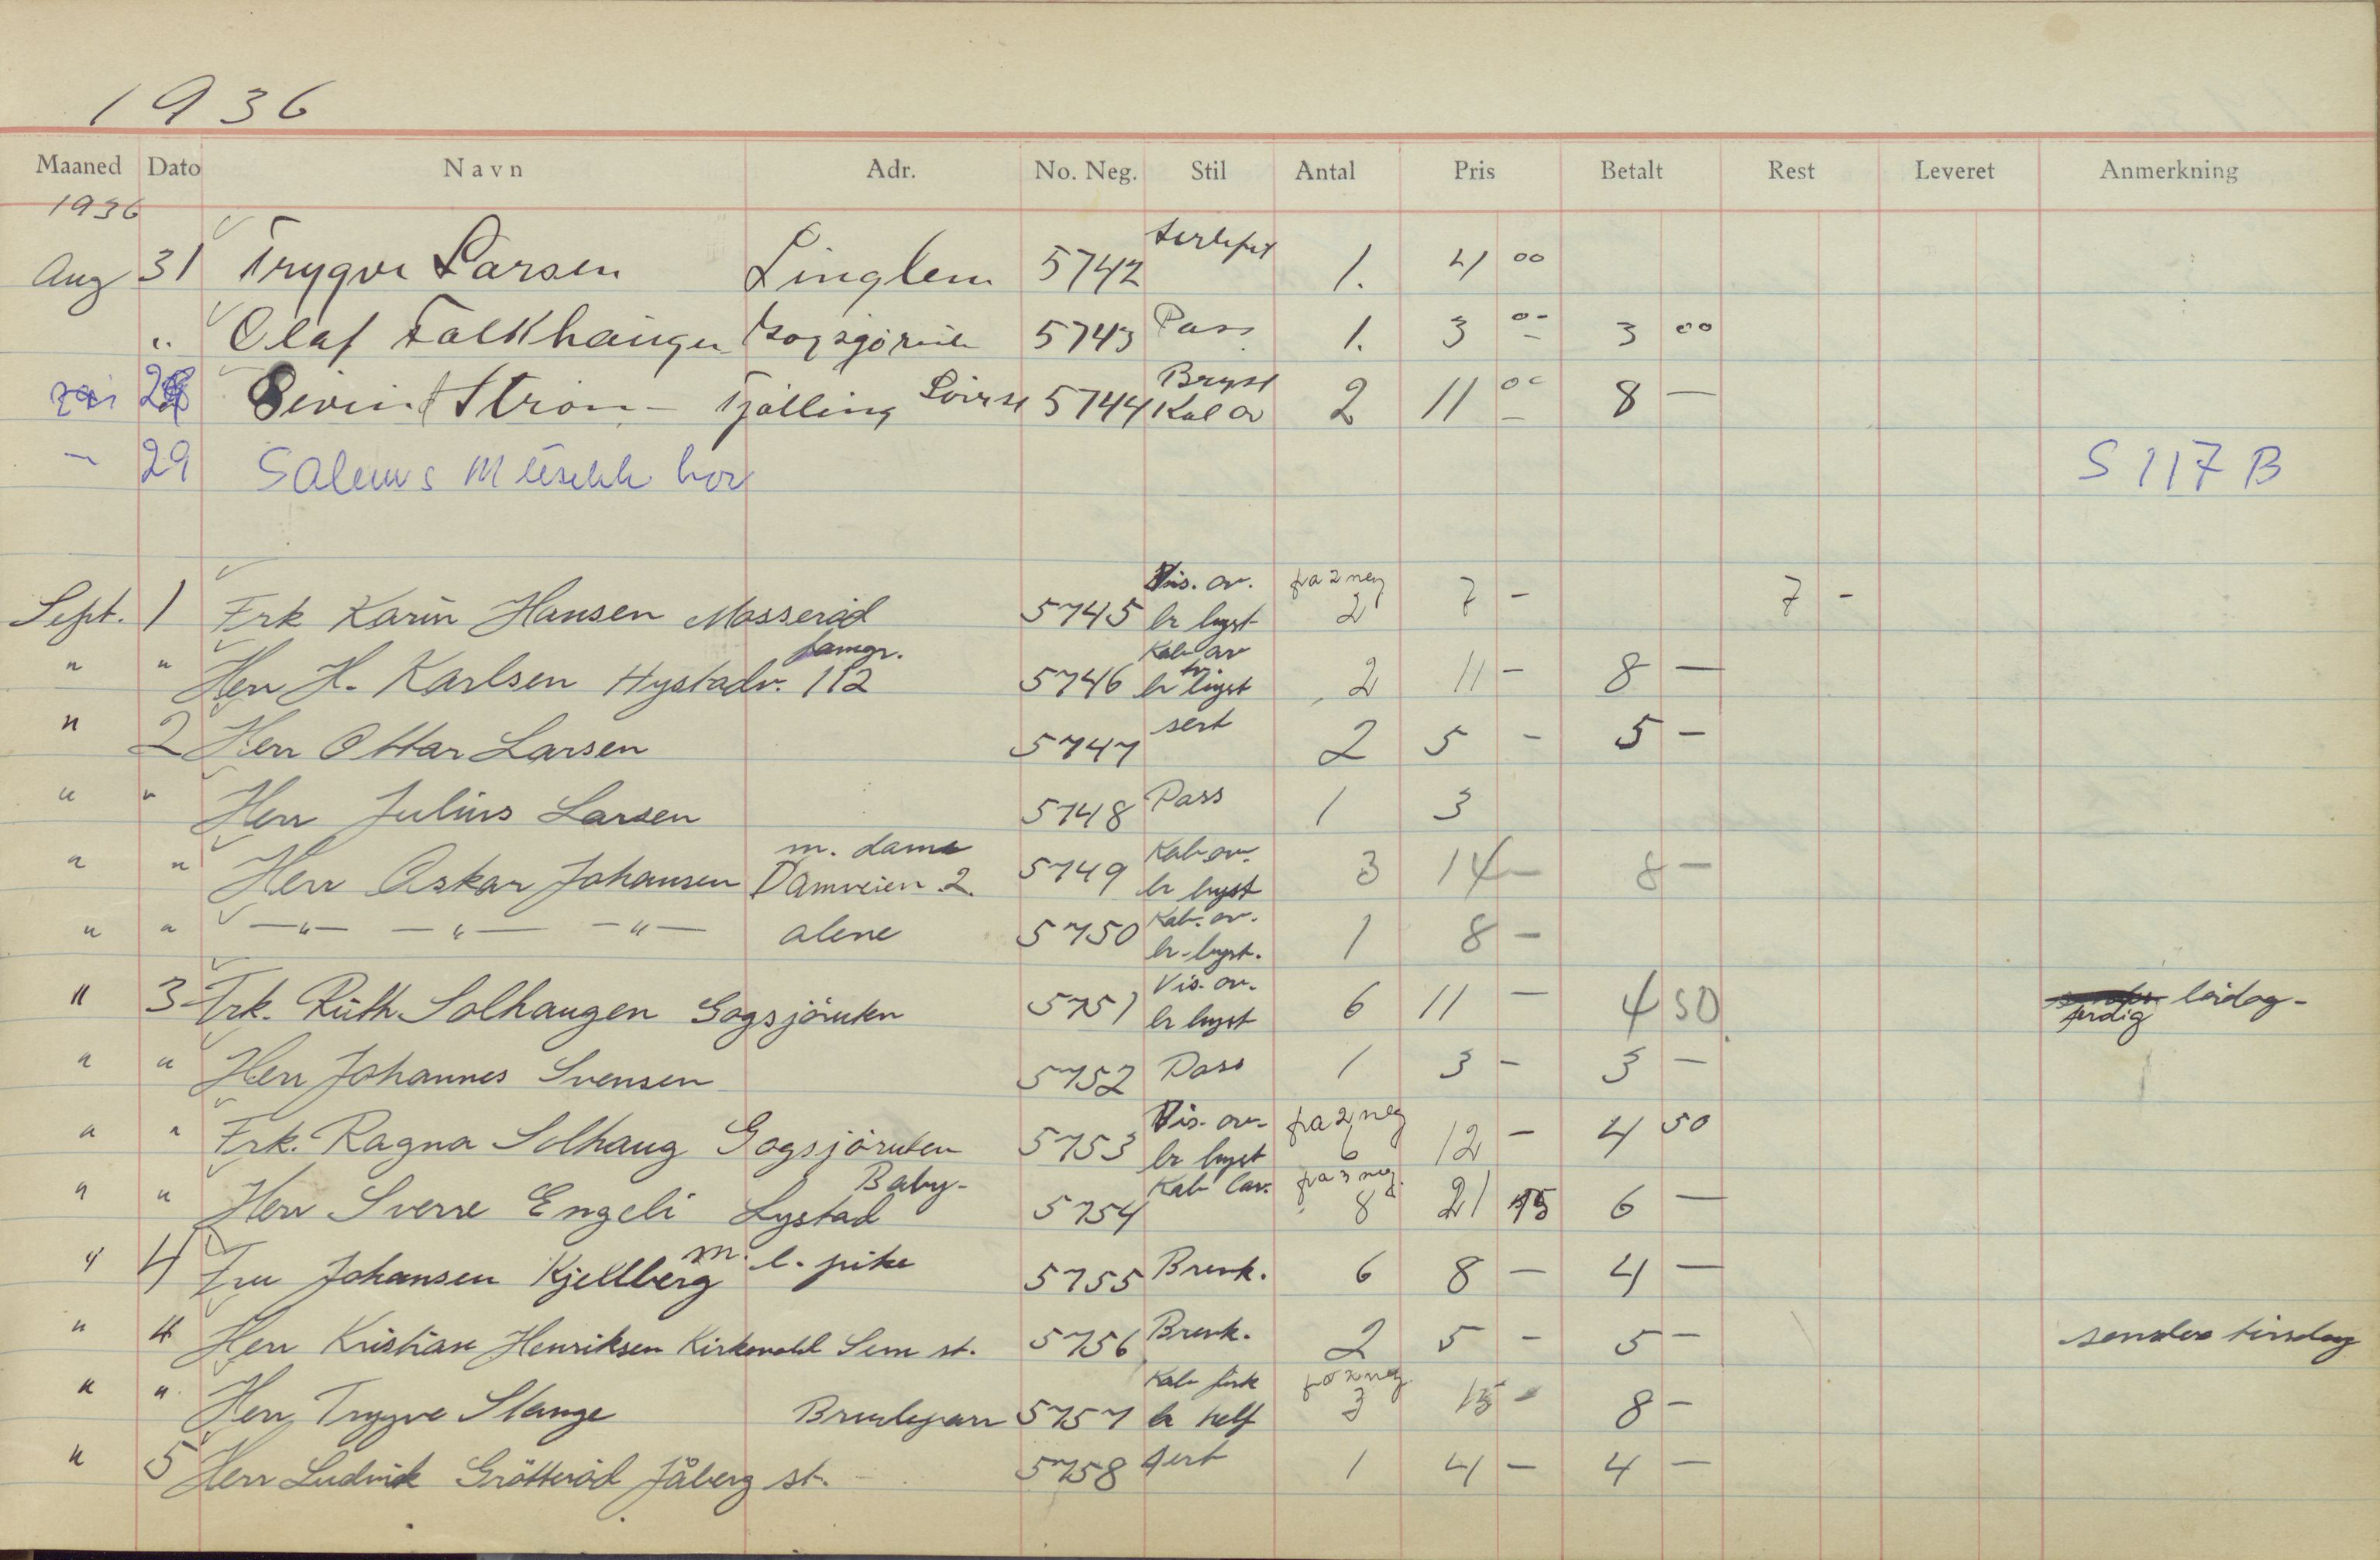 1936
Maaned Dato Navn Adr. No. Neg. Stil Antal Pris Betalt Rest Leveret Anmerkning
1936
Aug 31 Trygve Larsen Linglem 5742 1. 4 00
" Olaf Falkhaugen 5743 Pass 1. 3 00 3 00
Bryst
Eivind Strøm Tjølling 5744 Kab ov 2 11 00 8 —
— 29 Salems Musikk kor S 117 B
Vis. ov. fra 2 neg
Sept. 1 Frk Karin Hansen Masseröd 5745 br bryst 2 7 - 7 -
famgr. Kab ov
" " Herr H. Karlsen Hystadv. 112 5746 br bryst 2 11 - 8 —
sert
" 2 Herr Ottar Larsen 5747 2 5 - 5 -
" " Herr Julius Larsen 5748 Pass 1 3
m. dame Kab ov.
" " Herr Oskar Johansen Damveien 2. 5749 br bryst 3 14 — 8 —
Kab. ov.
" " —"— —"— —"— alene 5750 br. bryst. 1 8 -
Vis. ov. lördag -
" 3 Frk. Ruth Solhaugen Gogsjöruten 5751 br bryst 6 11 — 4 50 ferdig
" " Herr Johannes Svensen 5752 Pass 1 3 - 3 —
Vis. ov. fra 2 neg
" " Frk. Ragna Solhaug Gogsjöruten 5753 br bryst 6 12 - 4 50
Baby- Kab lav. fra 3 neg.
" " Herr Sverre Engeli Lystad 5754 8 21 75 6 —
m. l. pike
" 4 Fru Johansen Kjellberg 5755 Brevk. 6 8 — 4 —
" 4 Herr Kristian Henriksen Kirkevold Sem st. 5756 Brevk. 2 5 - 5 - sendes tirsdag
Kab fra 2 neg.
" " Herr Trygve Stange Brudepar 5757 br helf 3 15 - 8 -
" 5 Herr Ludvik Grötteröd Jåberg st. 5758 sert 1 4 — 4 —